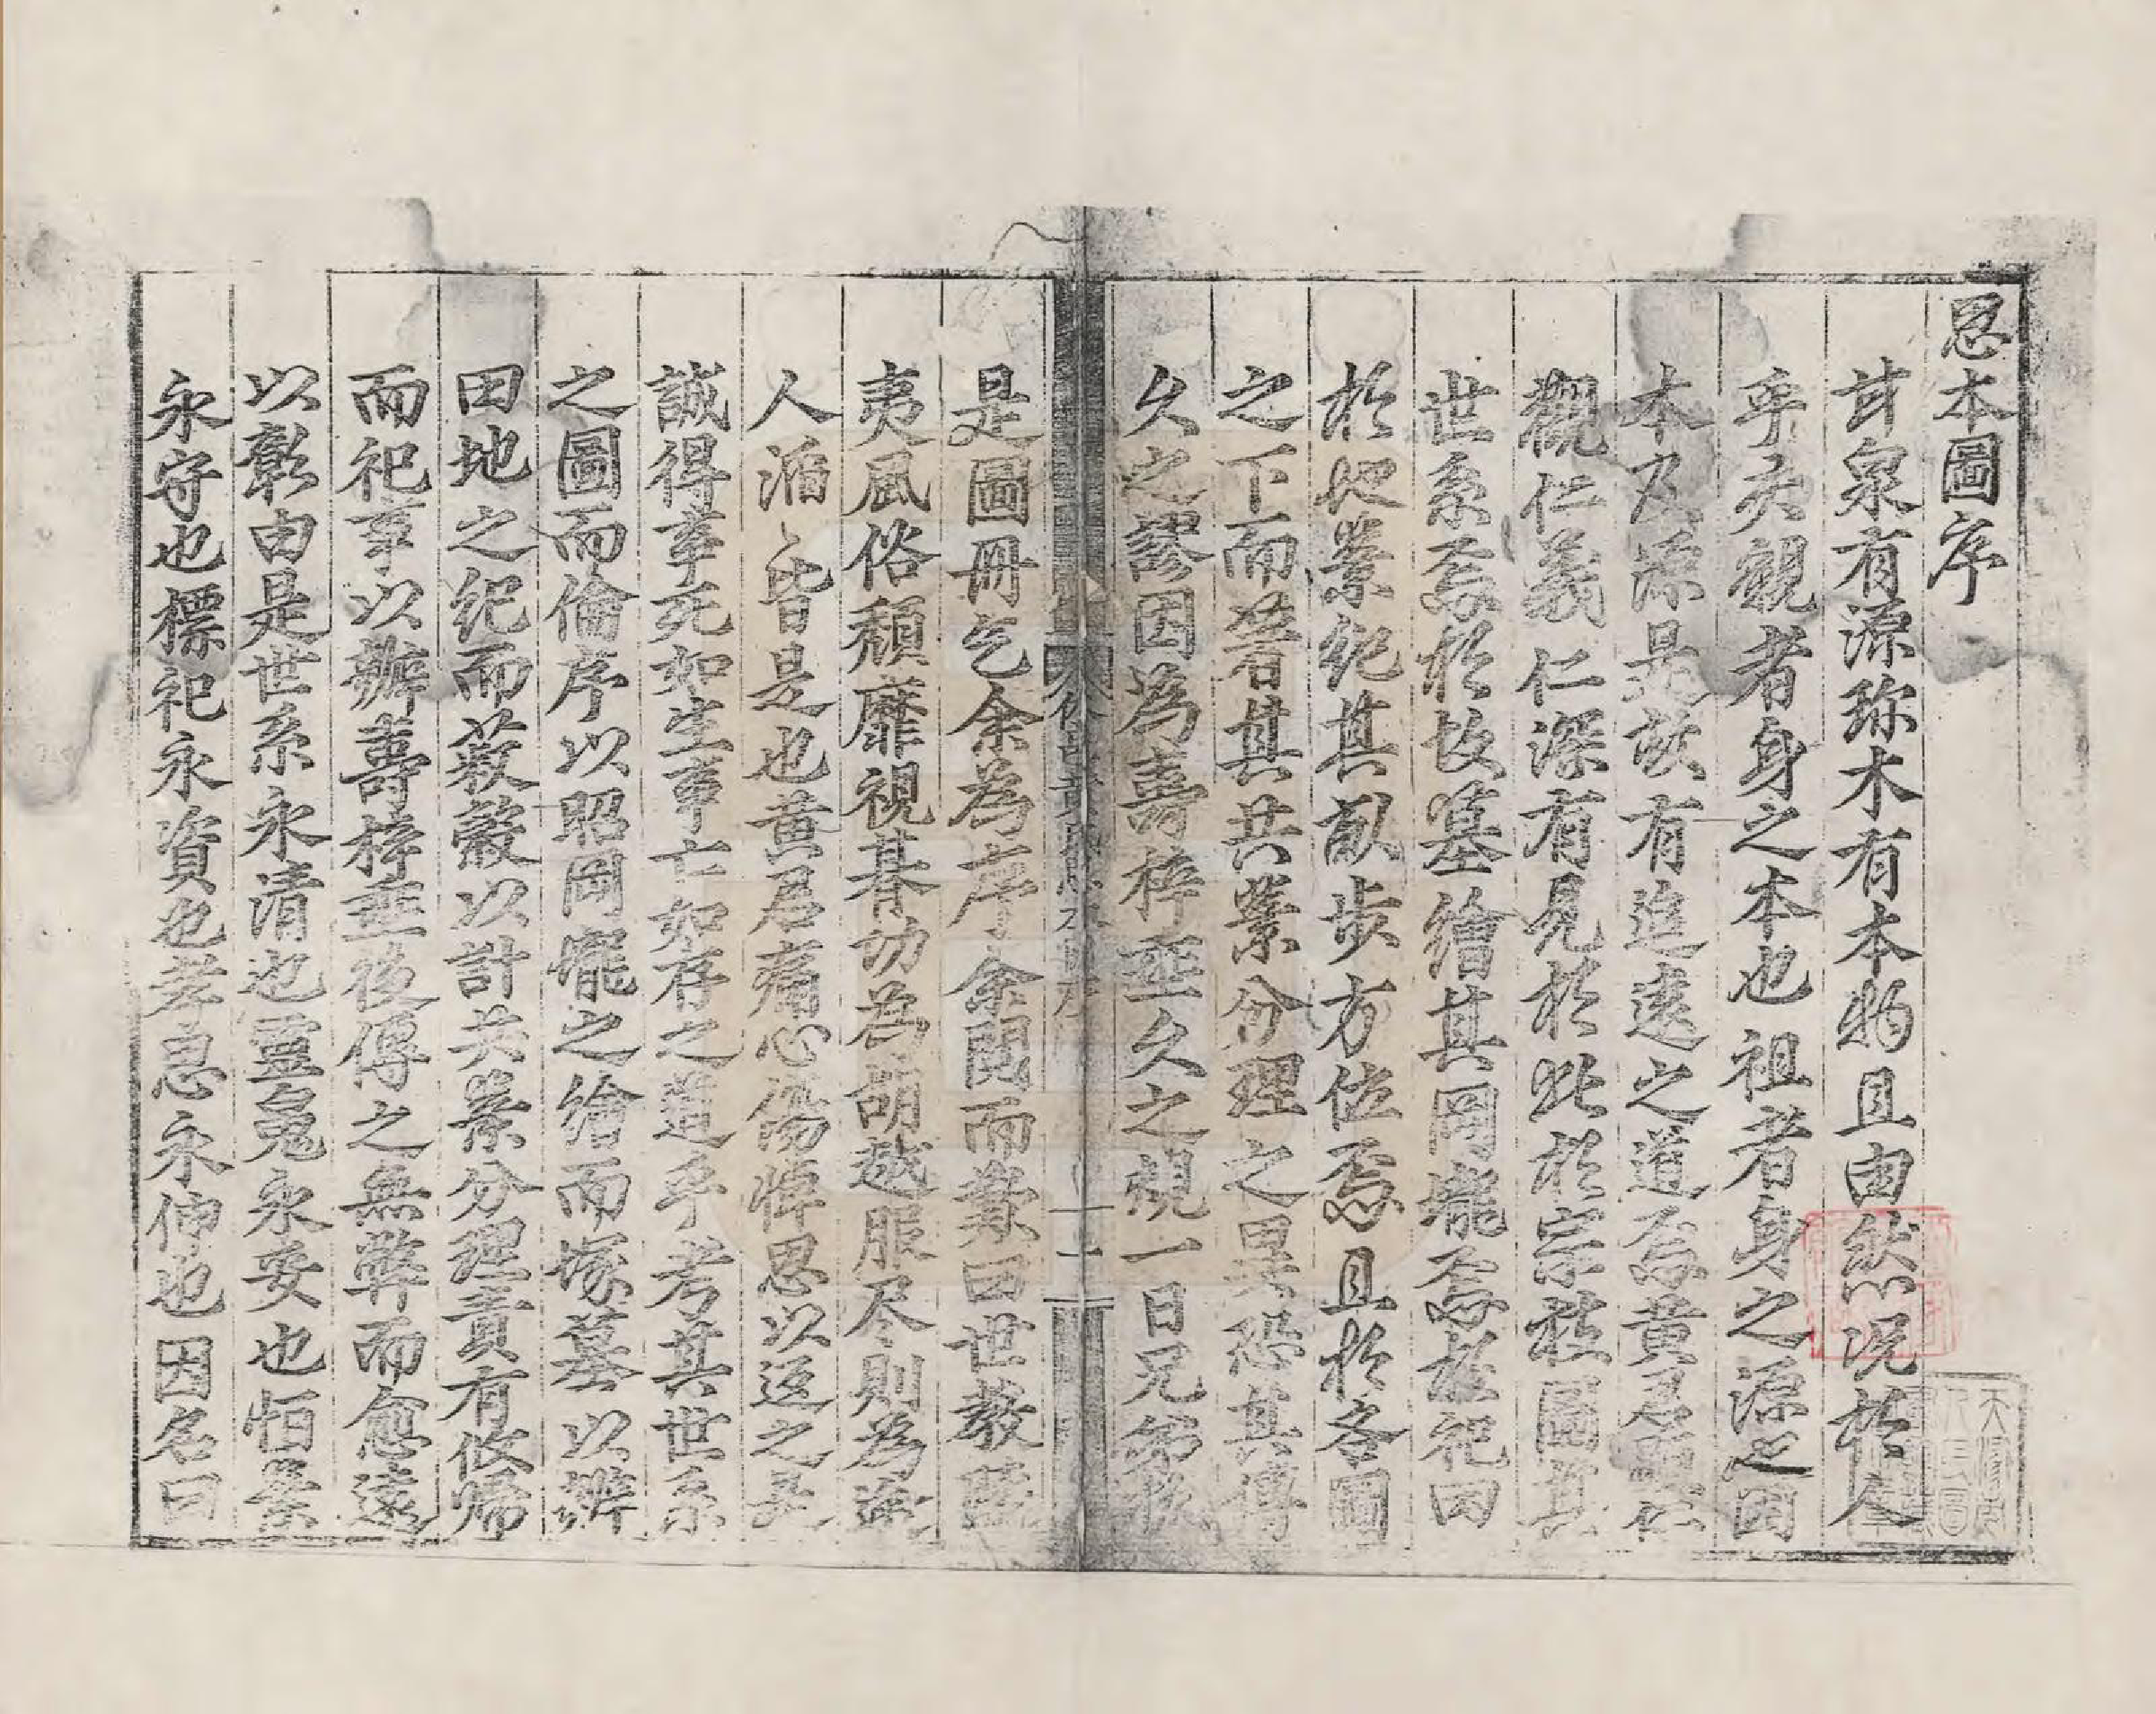 思本圖序
甘泉有源珎木有本物且由然况於人
乎夫親者身之本也祖者身之源也因
本及源是故有追遠之道焉黄君觀仁
觀仁義仁深有見於此於宗枝圖其
世系焉於坟墓繪其岡壠焉於祀田
於地業紀其畝步方位焉且於各圖
之下而著其共業分理之畢恐其傳
久之謬因為壽梓垂久之規一日兄弟執
是圖冊乞余為序余閲而嘆曰世教
夷風俗頹靡視朞功為胡越服尽則為途
人滔〻皆是也黄君痛心傷悼思以返之是
誠得事死如生事亡如存之道乎考其世系
之圖而倫序以昭岡壠之繪而塚墓以辨
田地之紀而㪇縠以計共業分理責有攸歸
而祀事以辦壽梓垂後傳之無弊而愈遠
以彰由是世系永清也靈魂永安也恒業
永守也標祀永資也孝思永伸也因名曰